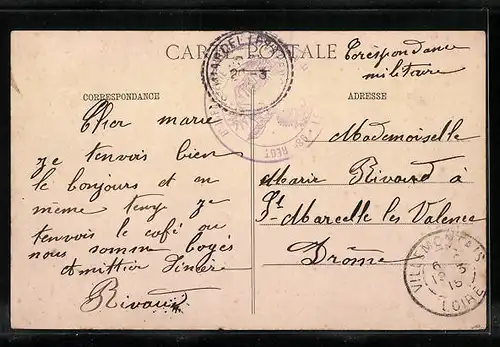 CARTE POSTALE
Corespondance
militaire
CORRESPONDANCE
ADRESSE
Cher marie
ze tenvois bien
le bonjours et en
même temp ze
tenvois le café ou
nous somm logés
Amittier Sincère
Rivaud
Mademoiselle
Marie Rivaud à
St Marcelle les Valence
Drôme
VILLEMONTAIS
LOIRE
REGT